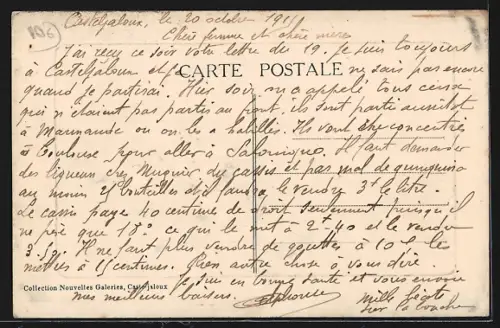 106
Casteljaloux, le 20 octobre 191
Chère femme et chère mère
J'ai reçu ce soir votre lettre du 19. Je suis toujours
à Casteljaloux et je ne sais pas encore
CARTE POSTALE
quand je partirai. Hier soir, on a appelé tous ceux
qui n'étaient pas partis au front, ils sont partis aussitôt
à Marmande où on les a habillés. Ils vont être concentrés
à Toulouse pour aller à Salonique. Il faut demander
des liqueurs chez Mugnier du cassis et pas mal de quinquina
au moins 25 bouteilles et il faudra le vendre 3f le litre.
Le cassis paye 40 centimes de droit seulement puisqu'il
ne pèse que 18° ce qui le met à 2f 40 et le vendre
3f. Il ne faut plus vendre de gouttes à 10 c. les
mettre à 15 centimes. Rien autre chose à vous dire
Je suis en bonne santé et vous envoie
mes meilleurs baisers. Alphonse
Mille
sur la
Collection Nouvelles Galeries, Casteljaloux